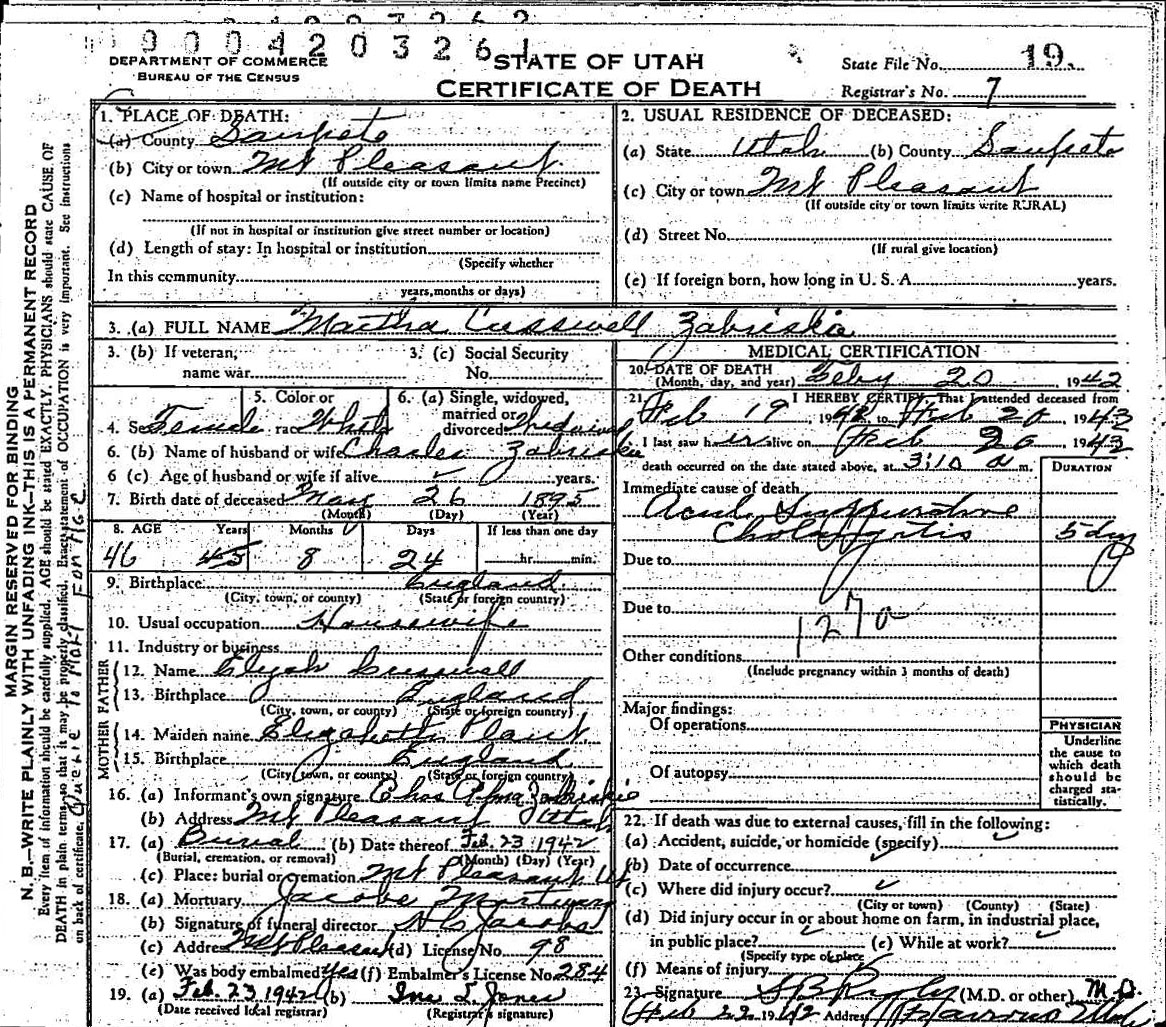 9004203261
DEPARTMENT OF COMMERCE
BUREAU OF THE CENSUS
STATE OF UTAH
CERTIFICATE OF DEATH
State File No. 19.
Registrar's No. 7
MARGIN RESERVED FOR BINDING
N. B.—WRITE PLAINLY WITH UNFADING INK—THIS IS A PERMANENT RECORD
Every item of information should be carefully supplied. AGE should be stated EXACTLY. PHYSICIANS should state CAUSE OF
DEATH in plain terms, so that it may be properly classified. Exact statement of OCCUPATION is very important. See instructions
on back of certificate.
1. PLACE OF DEATH:
(a) County Sanpete
(b) City or town Mt Pleasant
(If outside city or town limits name Precinct)
(c) Name of hospital or institution:
(If not in hospital or institution give street number or location)
(d) Length of stay: In hospital or institution
(Specify whether
In this community
years, months or days)
2. USUAL RESIDENCE OF DECEASED:
(a) State Utah (b) County Sanpete
(c) City or town Mt Pleasant
(If outside city or town limits write RURAL)
(d) Street No.
(If rural give location)
(e) If foreign born, how long in U. S. A. years.
3. (a) FULL NAME Martha Cusswell Zabriskie
3. (b) If veteran, name war
3. (c) Social Security No.
4. Sex Female
5. Color or race White
6. (a) Single, widowed, married or divorced Widowed
6. (b) Name of husband or wife Charles Zabriskie
6 (c) Age of husband or wife if alive years.
7. Birth date of deceased May 26 1895
(Month) (Day) (Year)
8. AGE Years Months Days If less than one day
46 45 8 24 hr. min.
9. Birthplace England
(City, town, or county) (State or foreign country)
10. Usual occupation Housewife
11. Industry or business
FATHER
12. Name Elijah Cusswell
13. Birthplace England
(City, town, or county) (State or foreign country)
MOTHER
14. Maiden name Elizabeth Plant
15. Birthplace England
(City, town, or county) (State or foreign country)
16. (a) Informant's own signature Chas Alma Zabriskie
(b) Address Mt Pleasant Utah
17. (a) Burial (b) Date thereof Feb. 23 1942
(Burial, cremation, or removal) (Month) (Day) (Year)
(c) Place: burial or cremation Mt Pleasant Ut
18. (a) Mortuary Jacobs Mortuary
(b) Signature of funeral director Jacobs
(c) Address Mt Pleasant (d) License No. 98
(e) Was body embalmed Yes (f) Embalmer's License No. 284
19. (a) Feb. 23 1942 (b) L. Jones
(Date received local registrar) (Registrar's signature)
MEDICAL CERTIFICATION
20. DATE OF DEATH
(Month, day, and year) Feby 20, 1942
21. I HEREBY CERTIFY, That I attended deceased from
Feb 19 1942 to Feb 20 1942
I last saw her alive on Feb 20 1942
death occurred on the date stated above, at 3:10 a m.
DURATION
Immediate cause of death
Acute Suppurative
5 day
Due to
Due to
127a
Other conditions
(Include pregnancy within 3 months of death)
Major findings:
Of operations
Of autopsy
PHYSICIAN
Underline
the cause to
which death
should be
charged sta-
tistically.
22. If death was due to external causes, fill in the following:
(a) Accident, suicide, or homicide (specify)
(b) Date of occurrence
(c) Where did injury occur?
(City or town) (County) (State)
(d) Did injury occur in or about home on farm, in industrial place,
in public place? (e) While at work?
(Specify type of place)
(f) Means of injury
23. Signature (M.D. or other) M.D.
Feb 22 1942 Address Utah